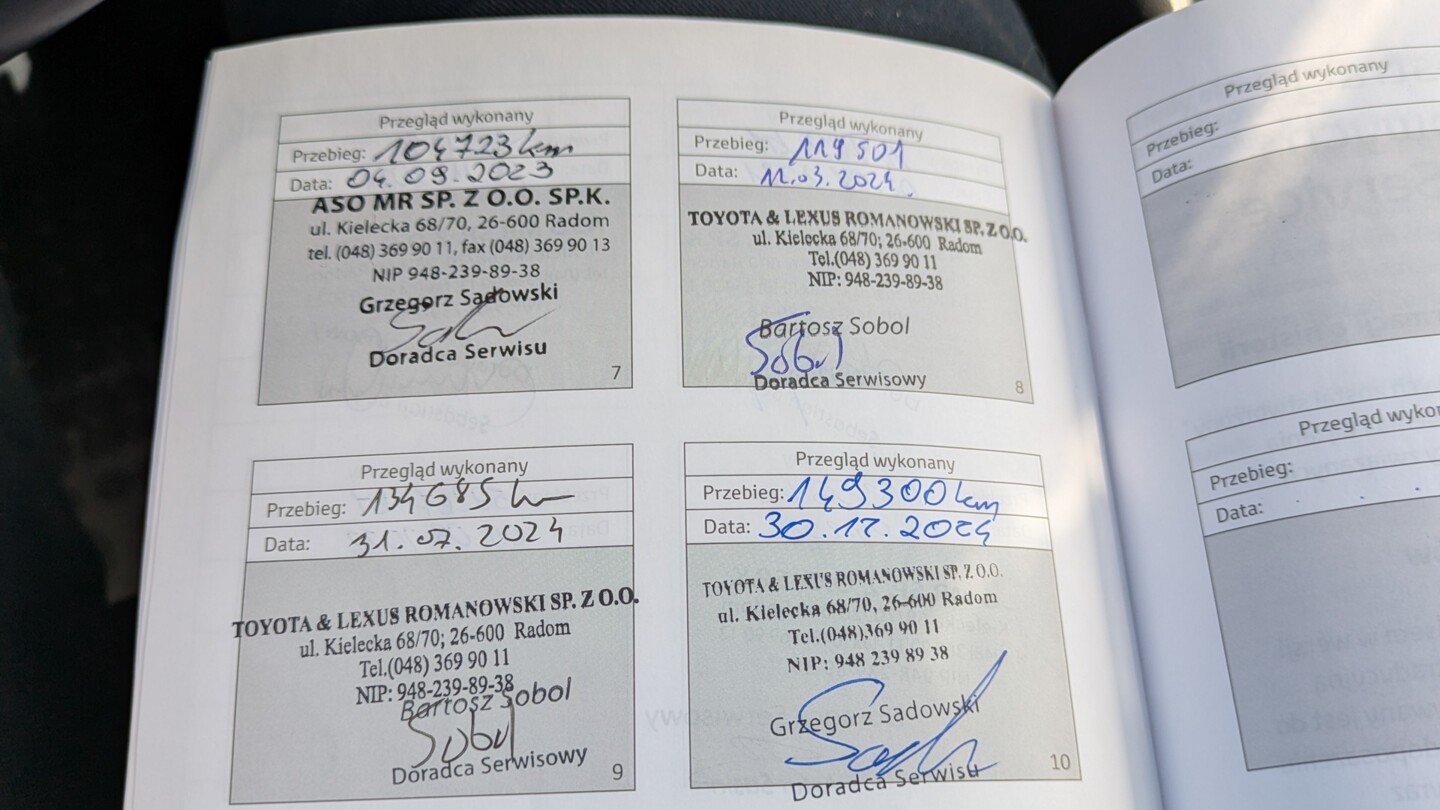 Przegląd wykonany
Przebieg: 104723 km
Data: 04.09.2023
ASO MR SP. Z O.O. SP.K.
ul. Kielecka 68/70, 26-600 Radom
tel. (048) 369 90 11, fax (048) 369 90 13
NIP 948-239-89-38
Grzegorz Sadowski
Doradca Serwisu
7
Przegląd wykonany
Przebieg: 119 501
Data: 11.03.2024.
TOYOTA & LEXUS ROMANOWSKI SP. Z O.O.
ul. Kielecka 68/70; 26-600 Radom
Tel.(048) 369 90 11
NIP: 948-239-89-38
Bartosz Sobol
Sobol
Doradca Serwisowy
8
Przegląd wykonany
Przebieg: 134685 km
Data: 31.07.2024
TOYOTA & LEXUS ROMANOWSKI SP. Z O.O.
ul. Kielecka 68/70; 26-600 Radom
Tel.(048) 369 90 11
NIP: 948-239-89-38
Bartosz Sobol
Sobol
Doradca Serwisowy
9
Przegląd wykonany
Przebieg: 149300 km
Data: 30.12.2024
TOYOTA & LEXUS ROMANOWSKI SP. Z O.O.
ul. Kielecka 68/70, 26-600 Radom
Tel.(048)369 90 11
NIP: 948 239 89 38
Grzegorz Sadowski
Doradca Serwisu
10
Przegląd wykonany
Przebieg:
Data:
Przegląd
Przebieg:
Data: